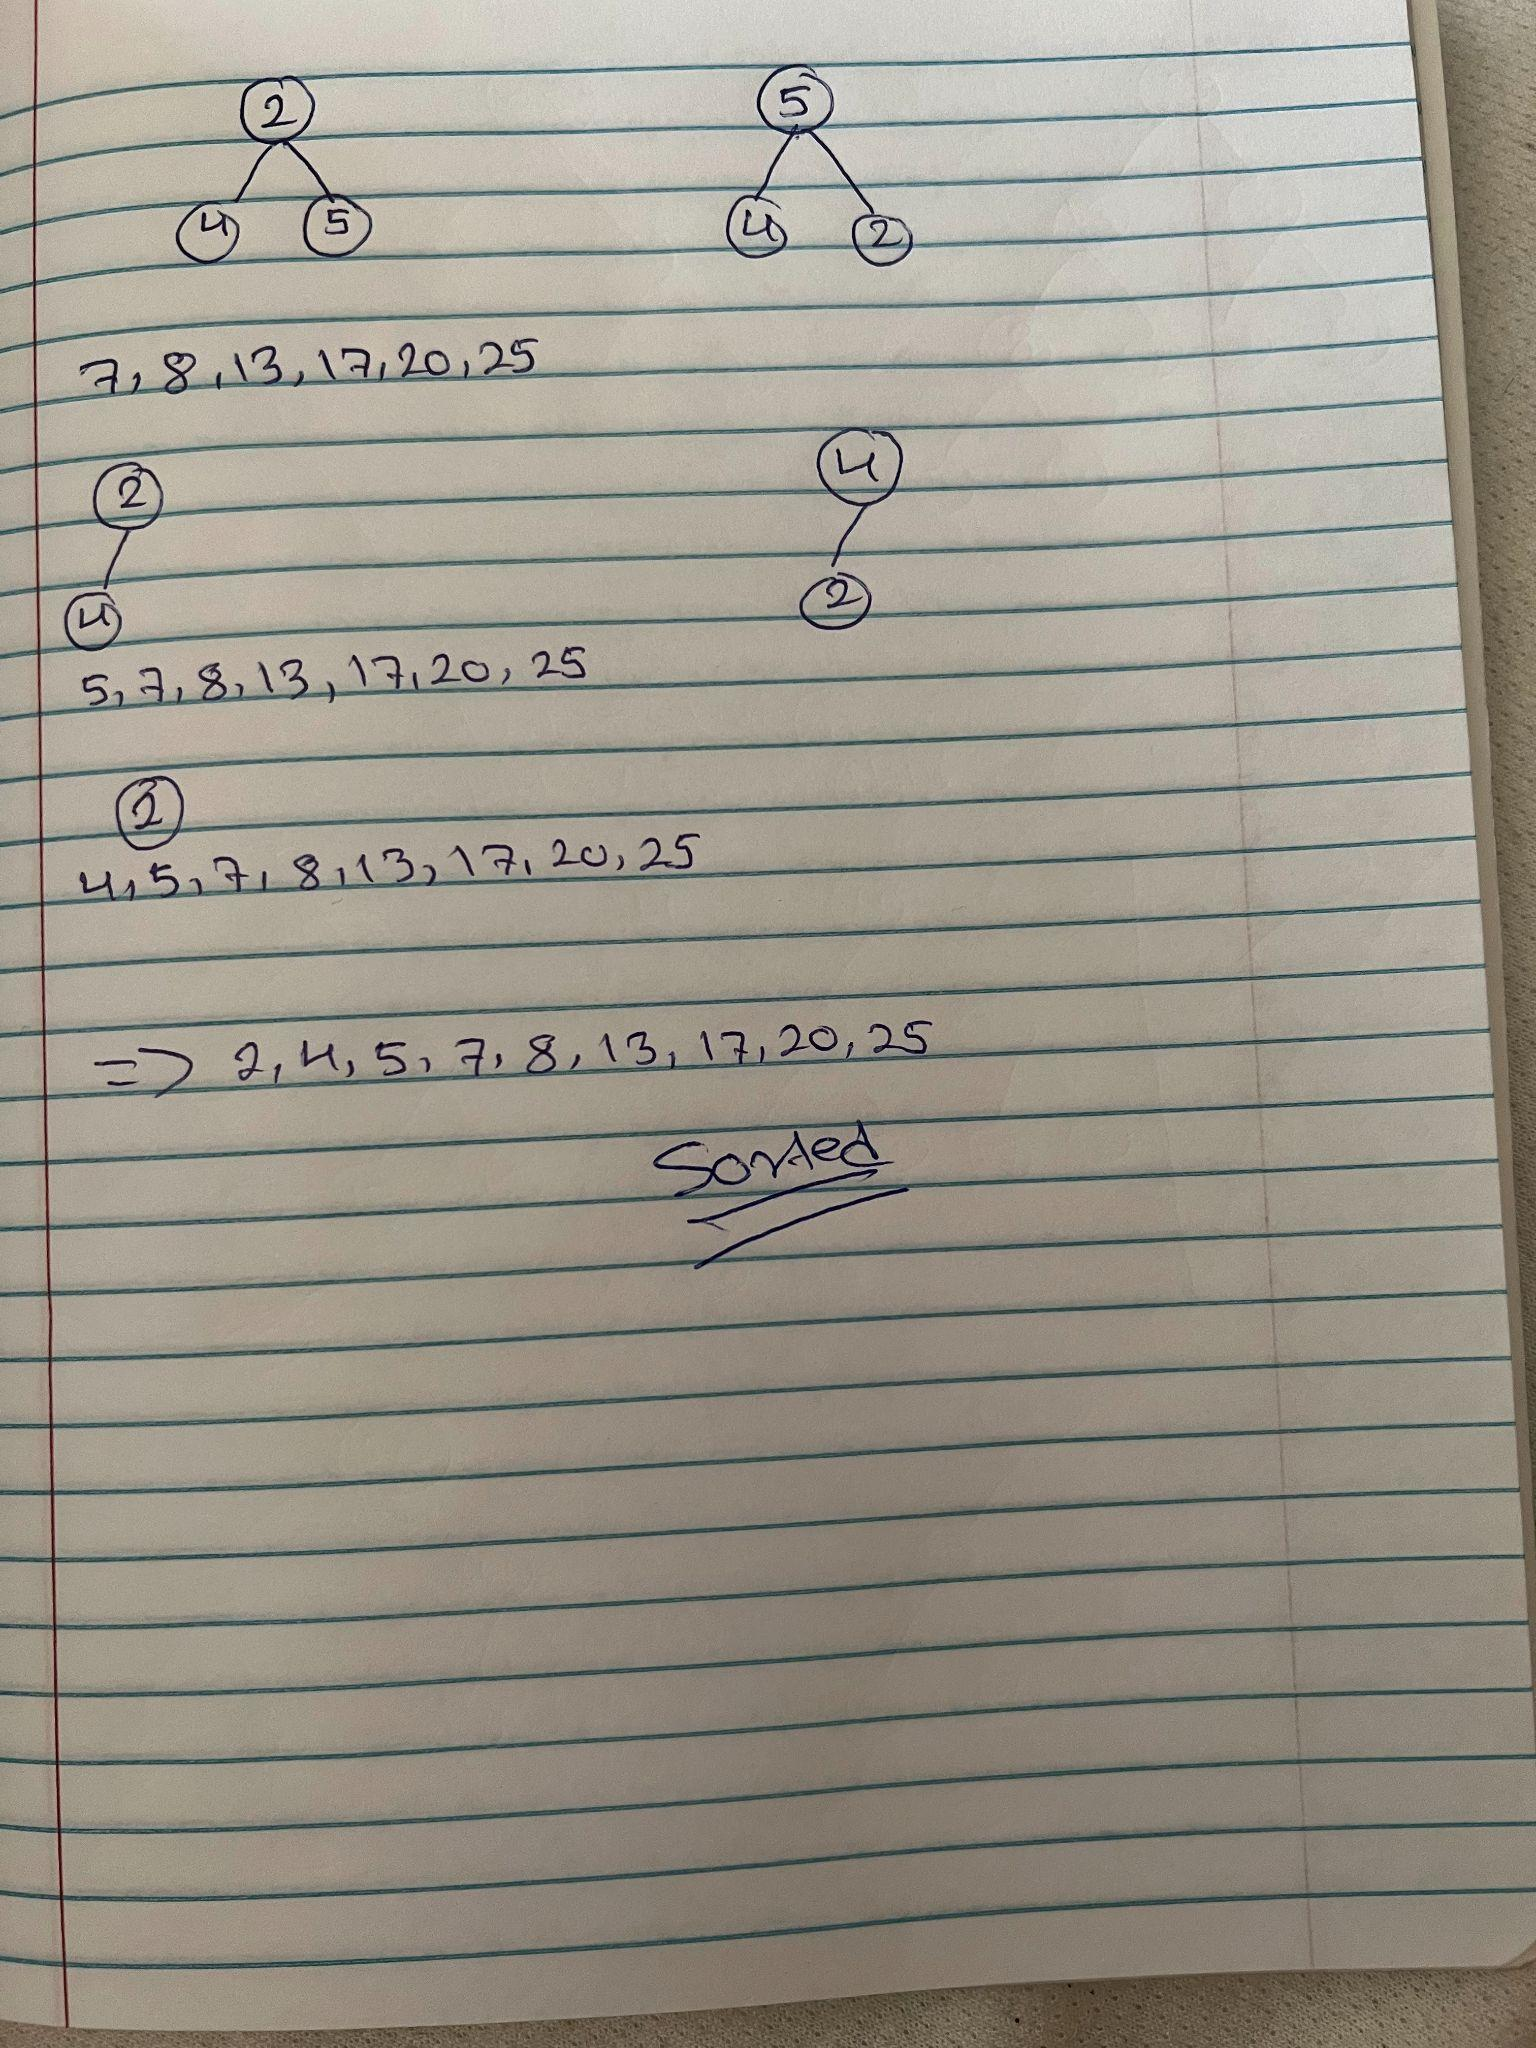 2 5
4 5 4 2
7, 8, 13, 17, 20, 25
2 4
4 2
5, 7, 8, 13, 17, 20, 25
2
4, 5, 7, 8, 13, 17, 20, 25
=> 2, 4, 5, 7, 8, 13, 17, 20, 25
Sorted